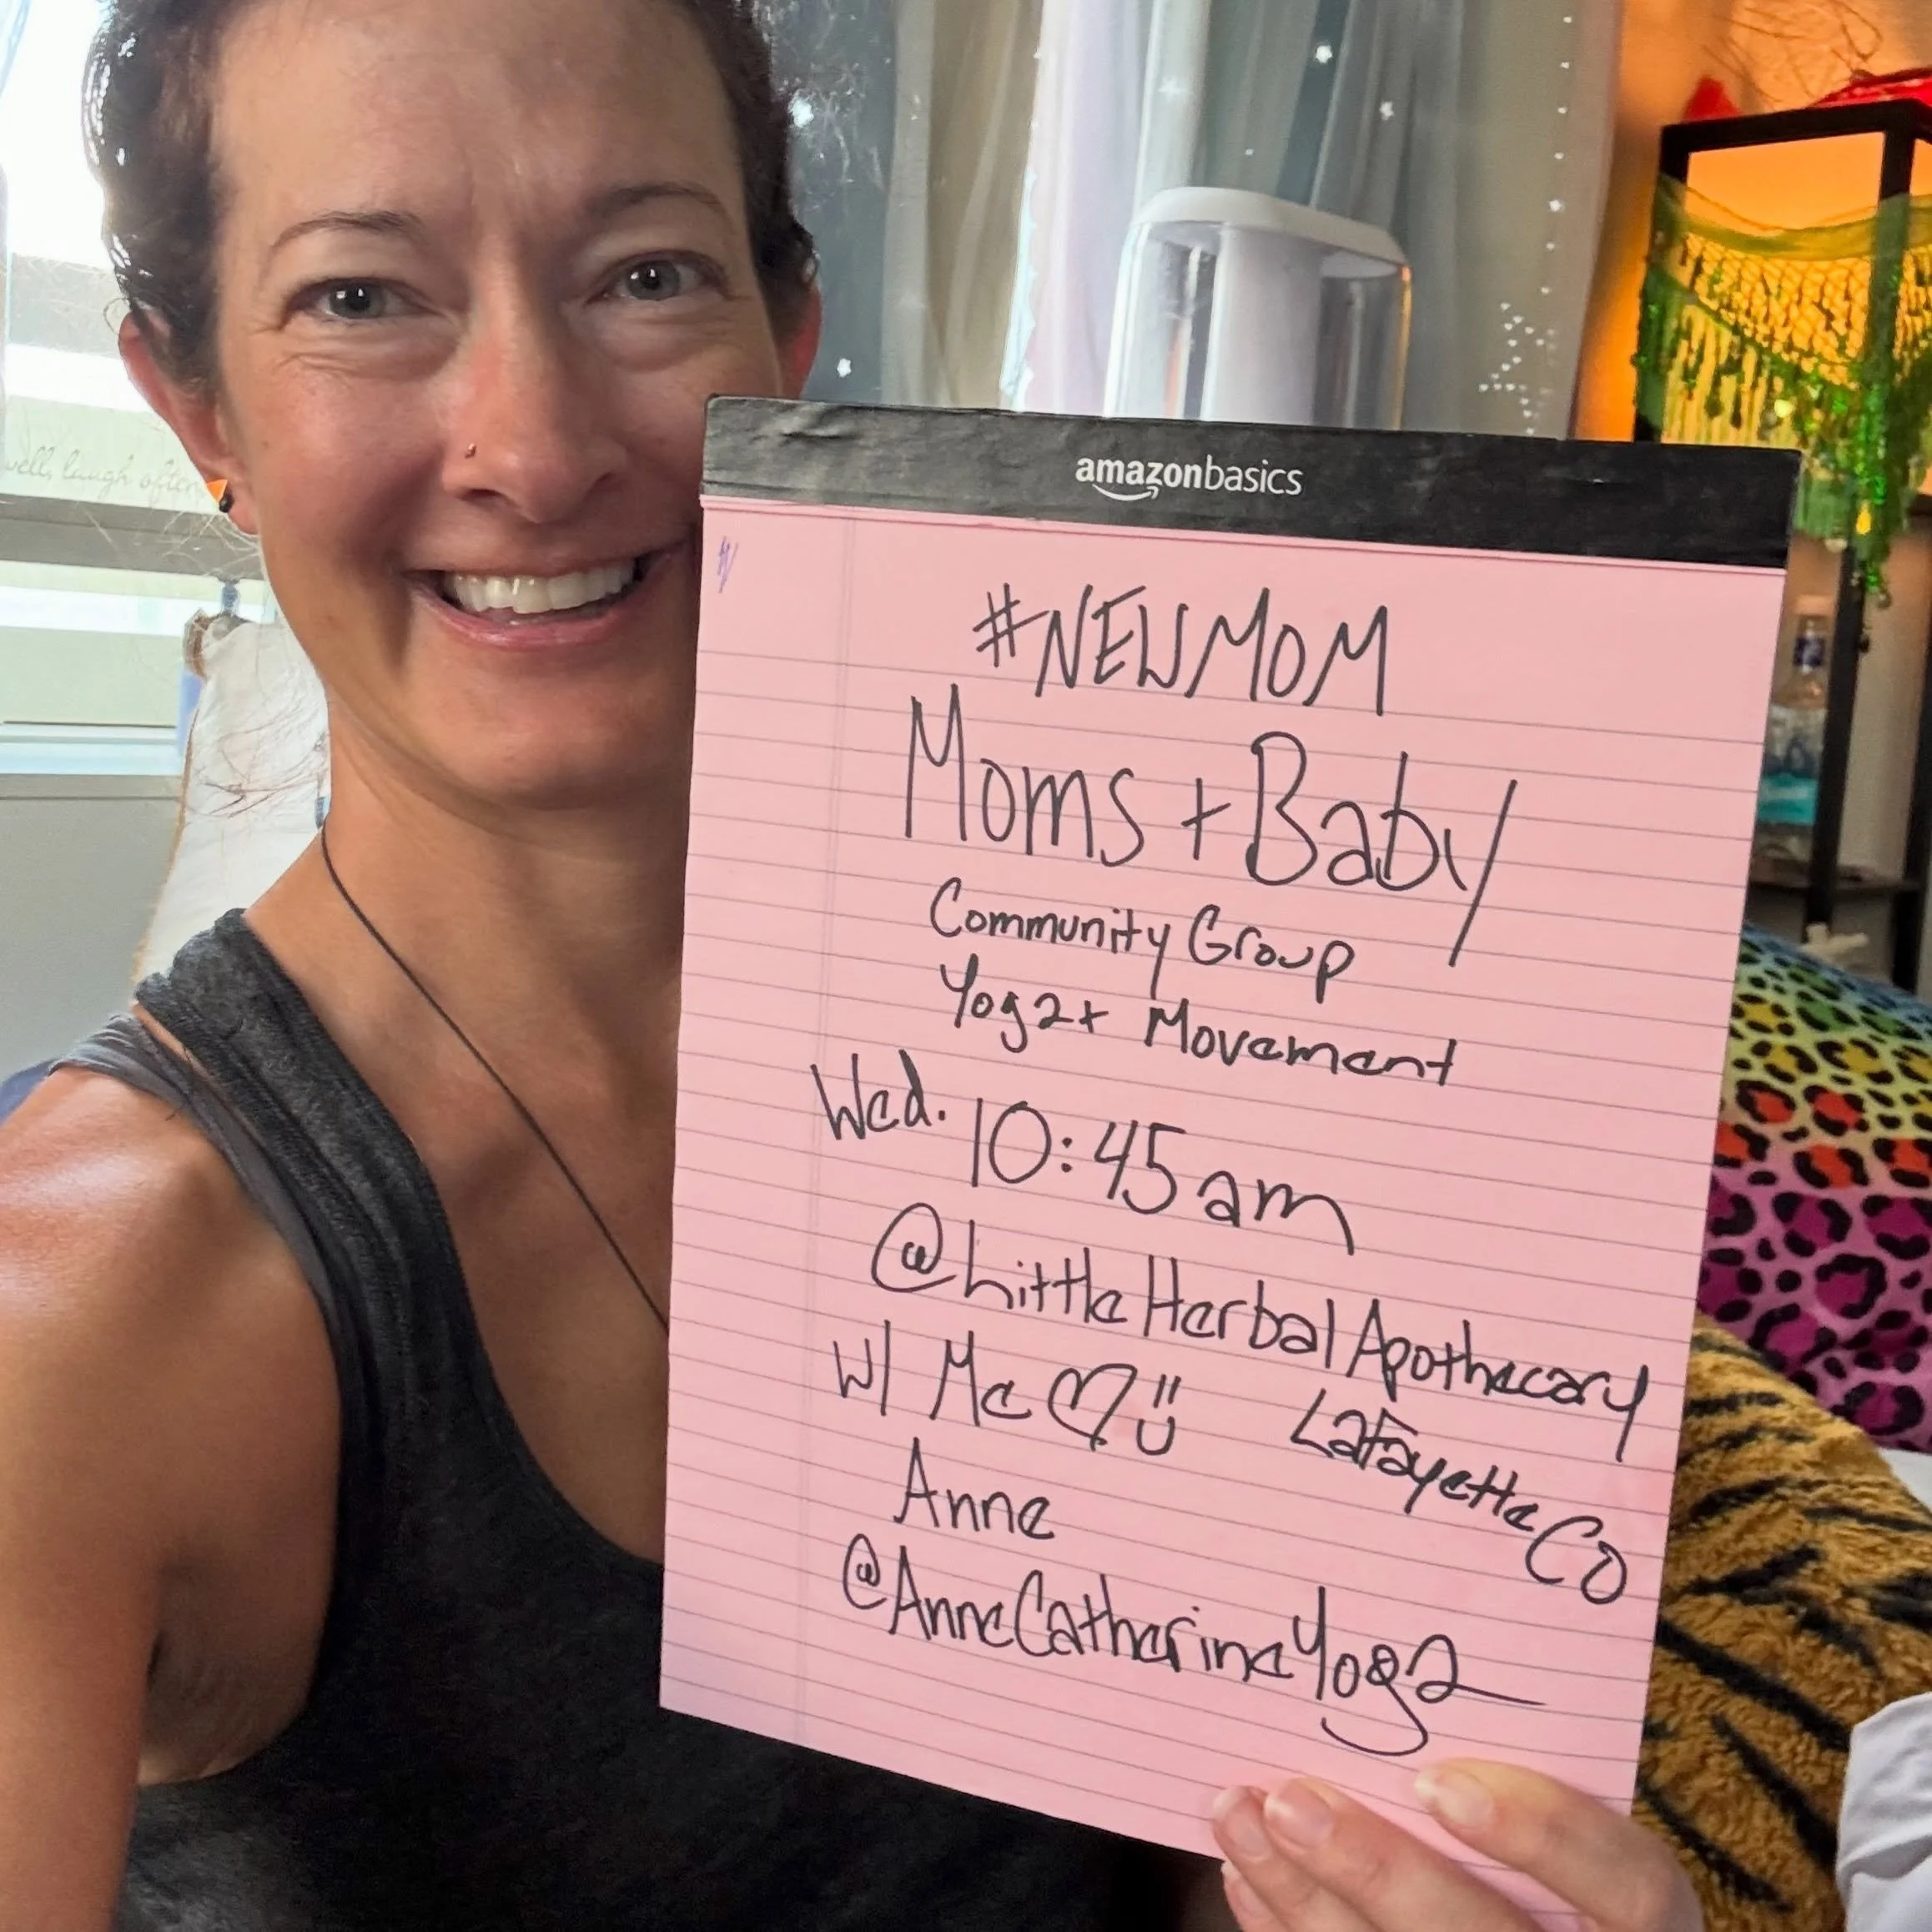 well, laugh often
amazonbasics
#NEWMOM
Moms + Baby
Community Group
Yoga + Movement
Wed. 10:45am
@LittleHerbalApothecary
w/ Me ♡ Lafayette CO
Anne
@AnneCatherineYoga